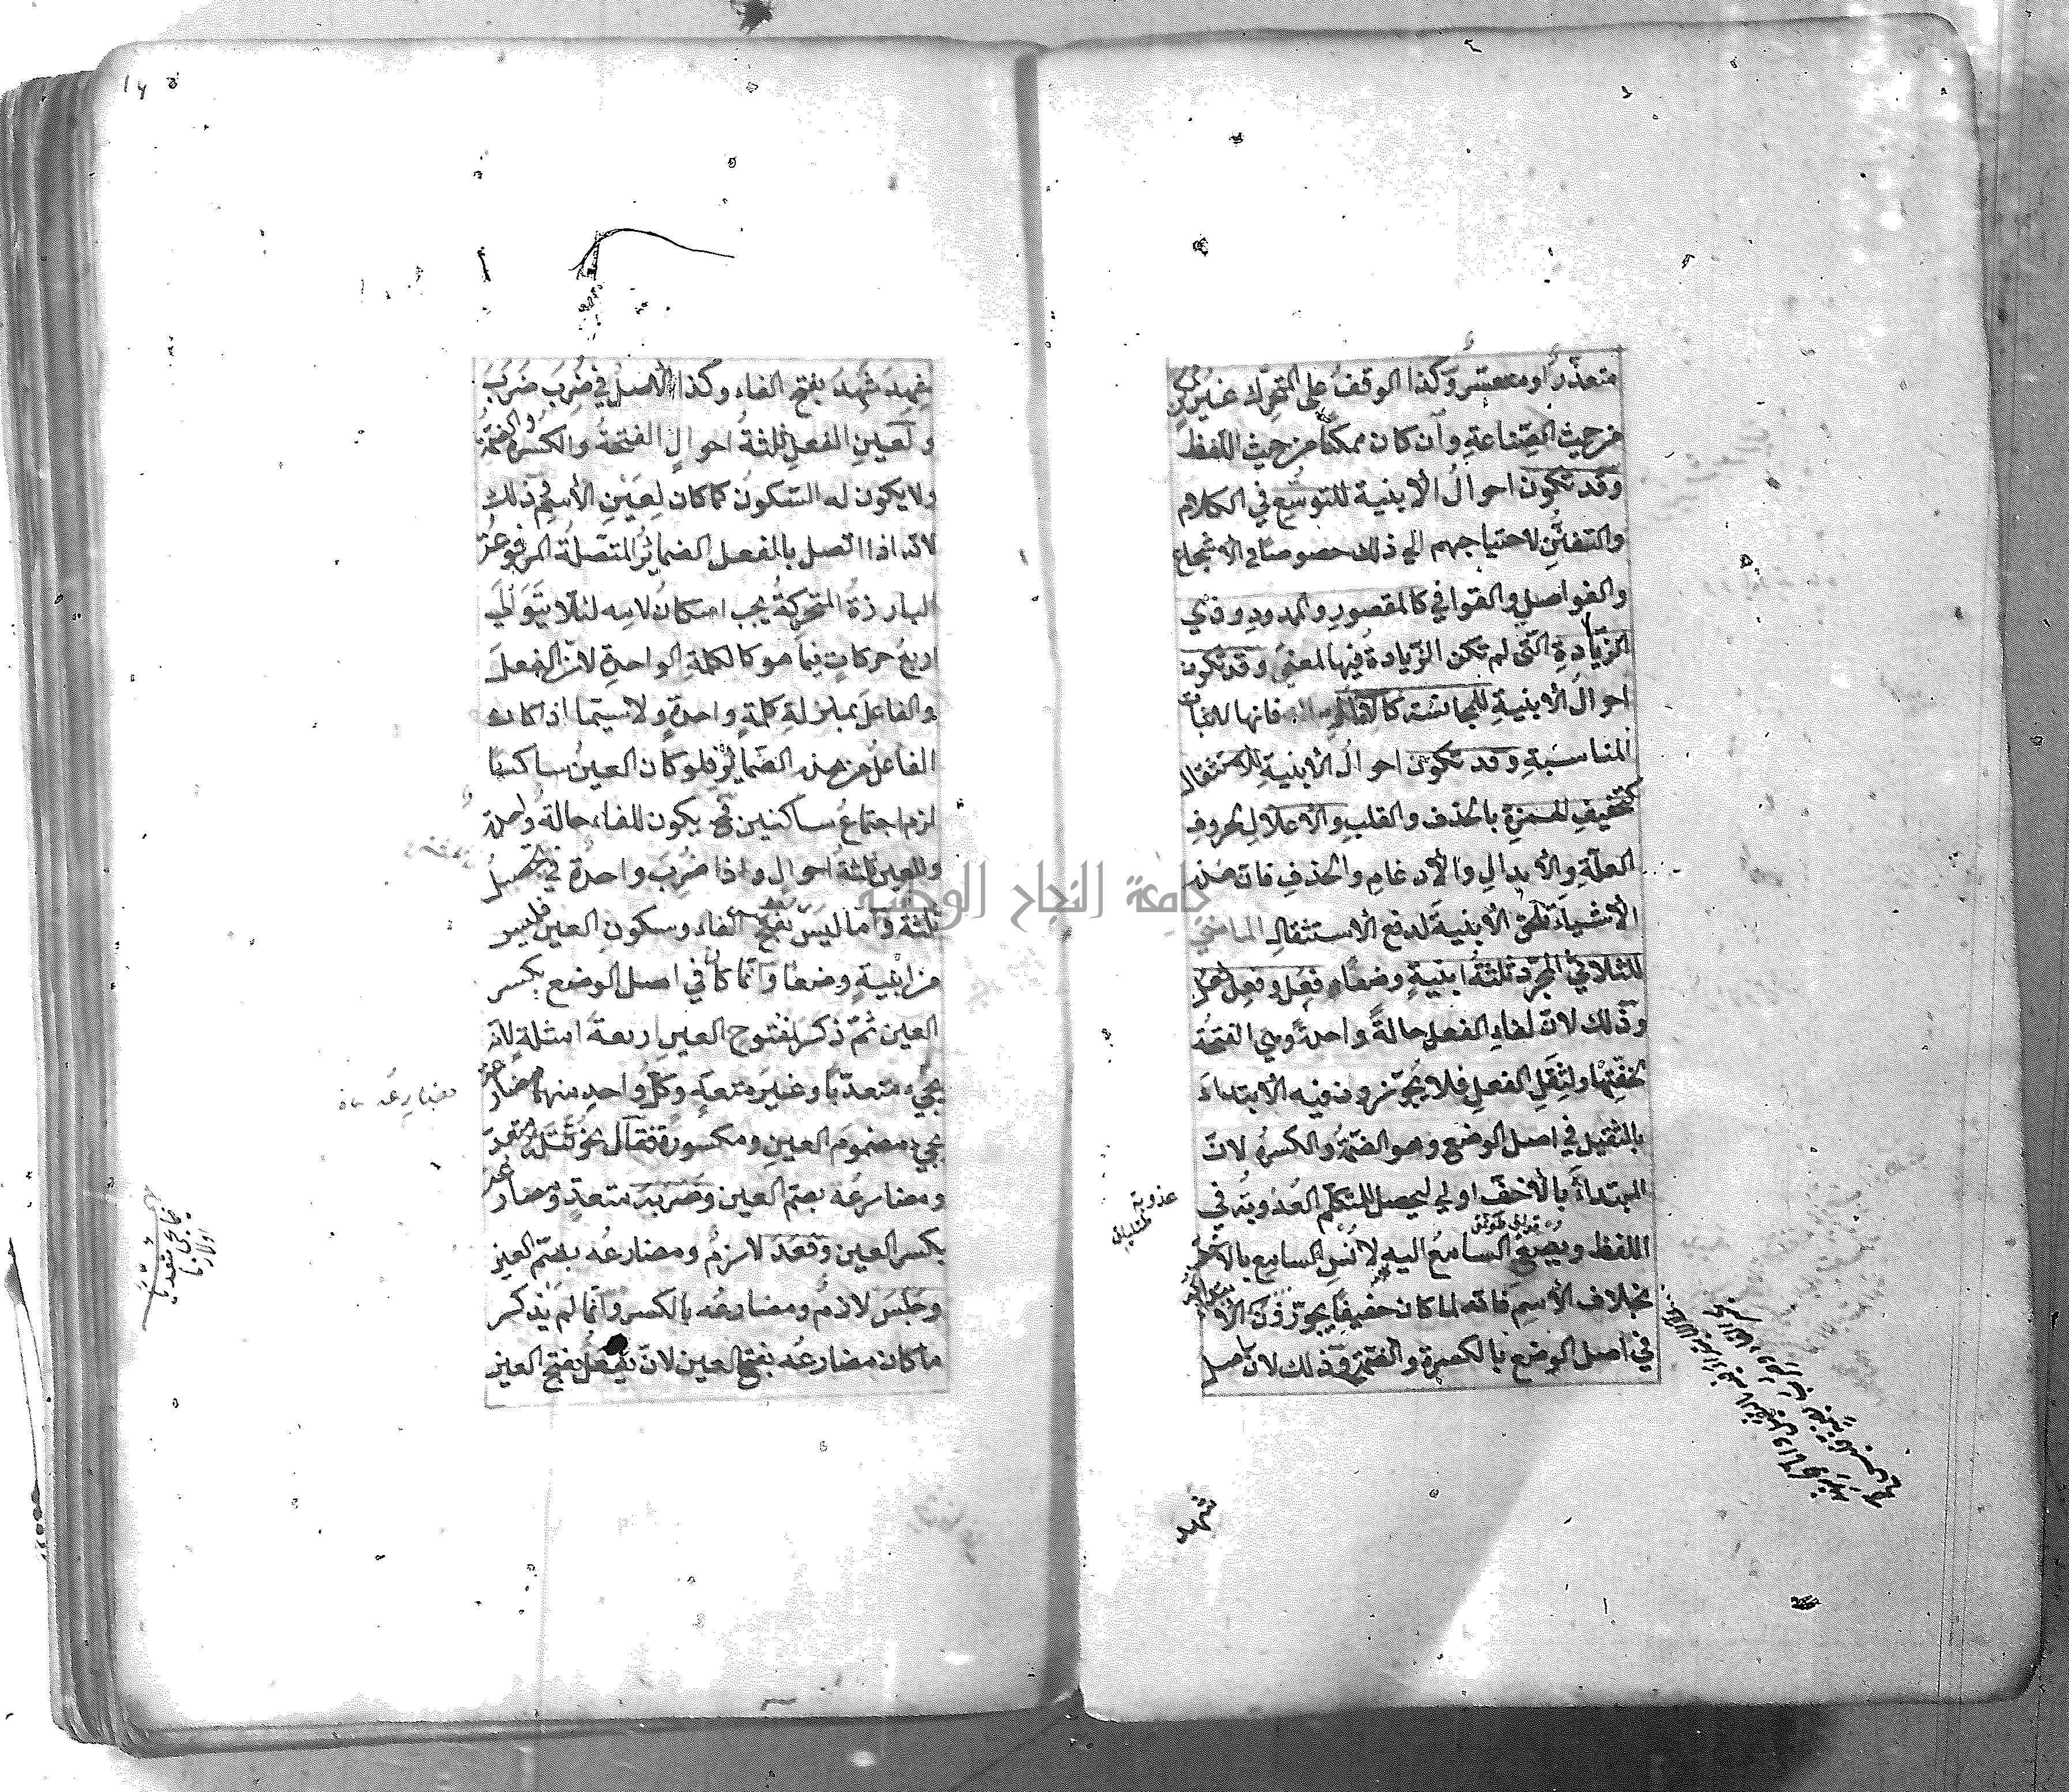 متعذّرًا ومتعسّر وكذا الوقفُ على المتحرّك غيرُ
من حيث الصّناعةِ وان كان ممكنًا من حيث اللفظ
وقد تكون احوالُ الأبنية للتوسّعِ في الكلام
والتفنّنِ لاحتياجهم الي ذلك خصوصًا في الأسجاع
والفواصلِ والقوافي كالمقصورِ والممدودِ وذي
الزّيادةِ الّتي لم تكن الزّيادةُ فيها لمعنيً وقد تكون
احوالُ الأبنيةِ للمجانسة كالإمالة فانها
المناسبةِ وقد تكون احوالُ الأبنيةِ للاستثقال
كتخفيفِ الهمزةِ بالحذف والقلبِ والاعلالِ لحروفِ
العلّةِ والأبدالِ والأدغامِ والحذفِ فان هذه
الأشياءَ تلحق الأبنيةَ لدفع الأستثقال الماضي
للثلاثي المجرّد ثلثةُ ابنيةٍ وضعًا فعَل وفعِل وفعُل
وذلك لان لفاءِ الفعلِ حالةً واحدةً وهي الفتحة
لخفّتِها ولثِقَلِ الفعلِ فلا يجوّزون فيه الأبتداءَ
بالثقيل في اصل الوضع وهو الضمّةُ والكسرة لانّ
المبتدأَ بالأخفّ اولي ليحصل للمتكلّم العذوبةُ في
اللفظ ويصغَي السامعُ اليه لأنس السامع بالأخف
بخلاف الأسمِ فانّه لما كان خفيفًا يجوّزون
في اصل الوضع بالكسرة والضمّة وذلك لان اصل
عذوبة
شهد
شِهِدَ شَهِدَ بفتح الفاء وكذا الأصلُ في ضُرِبَ ضَرَبَ
ولعينِ الفعلِ ثلثةُ احوالٍ الفتحةُ والكسرةُ والضمّةُ
ولا يكون له السّكونُ كما كان لِعَيْنِ الأسمِ ذلك
لانّه اذا اتّصل بالفعل الضمائرُ المتّصلةُ المرفوعةُ
البارزةُ المتحرّكةُ يجب اسكانُ لامِه لئلّا يتوَالَي
اربعُ حركاتٍ فيما هو كالكلمةِ الواحدةِ لانّ الفعلَ
والفاعلَ بمنزلةِ كلمةٍ واحدةٍ ولا سيّما اذا كان
الفاعلُ من هذه الضّمائرِ فلو كان العينُ ساكنًا
لزم اجتماعُ ساكنين فح يكون للفاء حالةٌ واحدة
وللعين ثلثةُ احوالٍ واذا ضُرِب واحدةٌ في ثلثة يحصلُ
ثلثة وأمّا ليسَ بفتح الفاءِ وسكونِ العين فليس
من ابنيةٍ وضعًا وانّما كان في اصل الوضع بكسر
العين ثمّ ذكر لمفتوح العينِ اربعةَ امثلةٍ لانّه
يجيءُ متعدّيًا وغيرَ متعدٍّ وكلُّ واحدٍ منهما مضارعه
يجيءُ مضمومَ العينِ ومكسورَه فقال نحو قَتَلَه متعدّ
ومضارعُه بضمّ العين وضربَه متعدٍّ ومضارعه
بكسر العين وقعَدَ لازمٌ ومضارعُه بضمّ العين
وجَلَسَ لازمٌ ومضارعُه بالكسر وانّما لم يَذكر
ما كان مضارعُه بفتح العين لانّ يَفعَلُ بفتح العين
مضارعه
جامعة النجاح الوطنية